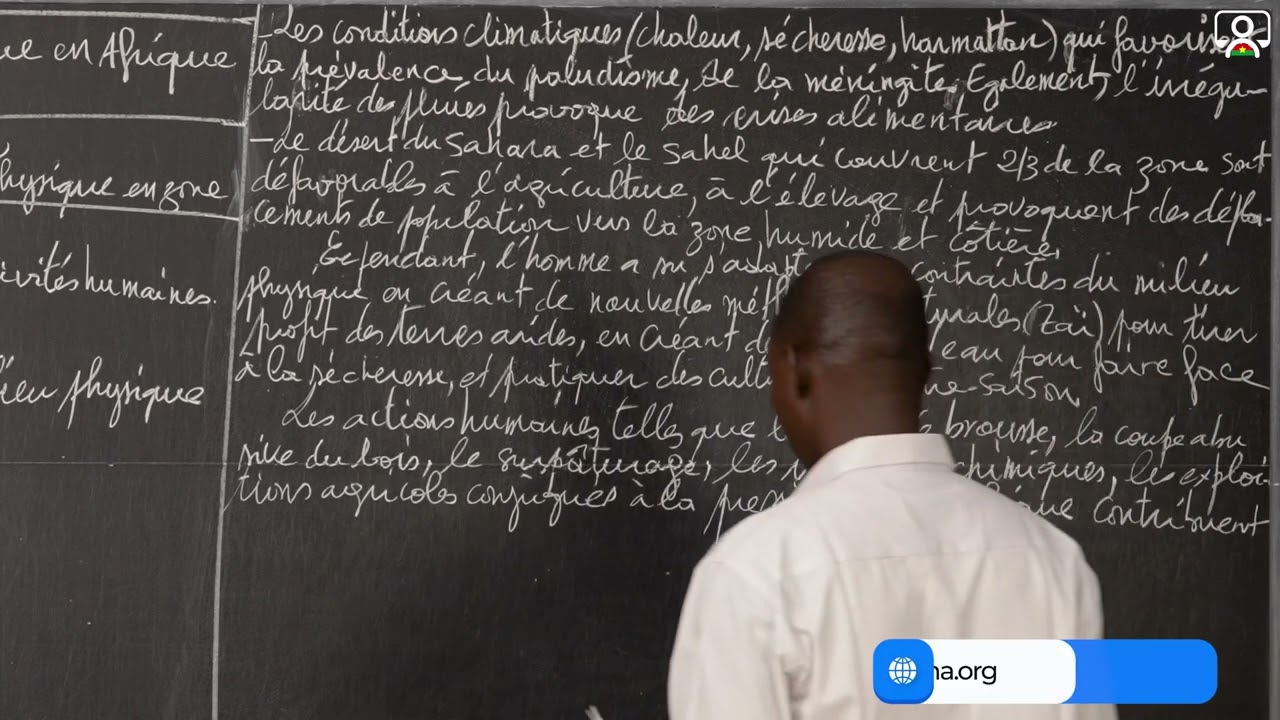 ue en Afrique
hysique en zone
ivités humaines.
lieu physique
-Les conditions climatiques (chaleur, sécheresse, harmattan) qui favorise
la prévalence du paludisme, de la méningite. Egalement, l'irrégu-
larité des pluies provoque des crises alimentaires
-Le désert du Sahara et le Sahel qui couvrent 2/3 de la zone sont
défavorables à l'agriculture, à l'élevage et provoquent des dépla-
cements de population vers la zone humide et côtière.
Cependant, l'homme a su s'adapt contraintes du milieu
physique en créant de nouvelles méth turales (zaï) pour tirer
profit des terres arides, en créant d eau pour faire face
à la sécheresse, et pratiquer des cult saison
Les actions humaines telles que brousse, la coupe abu
sive du bois, le surpâturage, les chimiques, les exploi-
tions agricoles conjuguées à la pres que contribuent
na.org